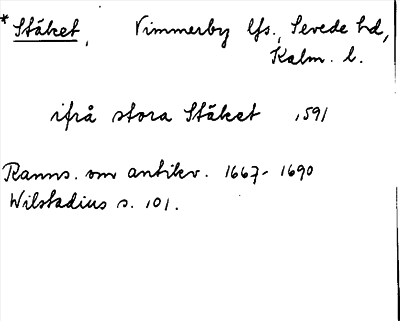 * Stäket, Vimmerby lfs., Sevede hd,
Kalm. l.
ifrå stora Stäket 1591
Ranns. om antikv. 1667-1690
Wilstadius s. 101.